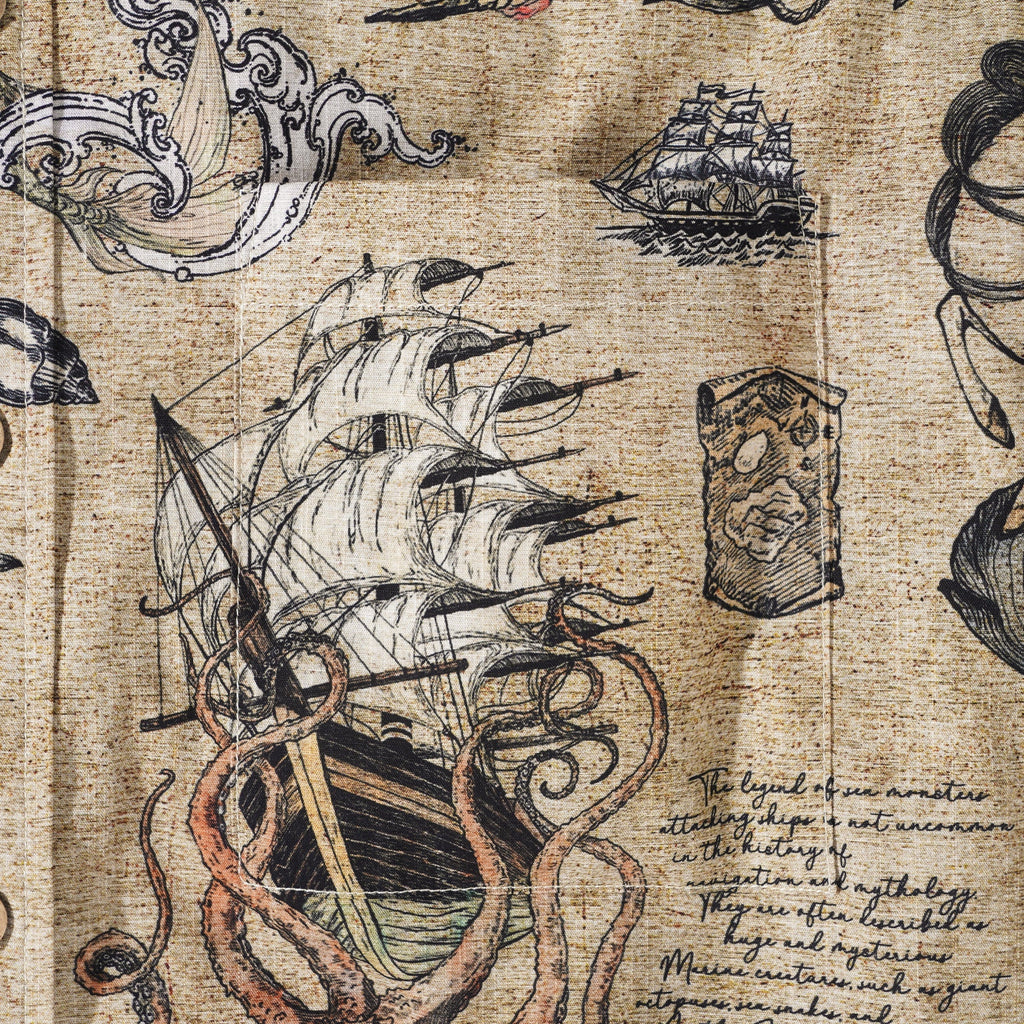 The legend of sea monsters
attacking ships is not uncommon
in the history of
navigation and mythology.
They are often described as
huge and mysterious
Marine creatures, such as giant
octopuses, sea snakes, and